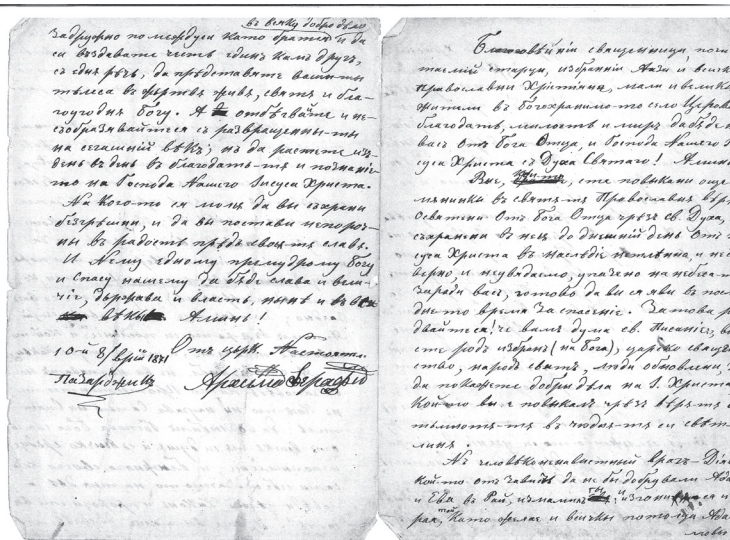 въ всяку добро дѣло
задружно помеждуси като братия и да
си въздавате честь единъ камъ другъ,
съ една рѣчь, да прѣдставяте вашиты
тѣлеса въ жъртвъ живъ, свять и бла-
гоугодна Богу. А отбѣгвайте и не
съобразявайтеся съ развращенны-ты
на сегашній вѣкъ; нъ да растете изъ
день въ день въ благодать-тъ и познаніе
то на Господа Нашего Іисуса Христа.
На Кого-то ся моля да вы съхрани
безгрѣшни, и да вы постави непороч-
ны въ радость прѣдъ своя-тъ славъ.
И Нему едному премудрому Богу
и Спасу нашему да бъде слава и вели-
чіе, държава и власть, нынѣ и въ
вѣкы Аминь!
10-й 8/врій 1871 Отъ църк. Настоятел.
Пазарджикъ
Благовѣйніи священници, почи
таемій старци, избранніи Аази и всички
Православни Християне, мали и велики
жители въ Богохранимо-то село Церово
благодать, милость и миръ да бъде съ
васъ отъ Бога Отца, и Господа Нашего І
суса Христа съ Духа Святаго! Аминь
Вые, сте повыкани още
мленникы въ святъ-тъ Православнъ вѣръ
Освятени отъ Бога Отца чрѣзъ св. Духа,
съхранени въ нея до днешній день отъ І
суса Христа въ наслѣдіе нетлѣнна и неск
верно, и неувядаемо, упазено на небеса-т
Заради васъ, готово да ви ся яви въ посл
дне-то время за спасеніе. За това ра
двайтеся! че вамъ дума св. Писаніе, вы
сте родъ избранъ (на Бога), царско священ
ство, народъ святъ, люди обновлени, з
да покажете добры дѣла на І. Христа
Кой-го вы е повыкалъ чрѣзъ вѣрж-тъ о
тьмнотъ-тъ въ чюдня-тъ си свѣт-
линъ.
Нъ человѣконенавистный врагъ-Діяв
кой-то отъ зависть да не бы добрували Ада
и Ева въ Рай, измами гы и изгони ся и
рая, като желае и всичкы потомци Ада
мовы